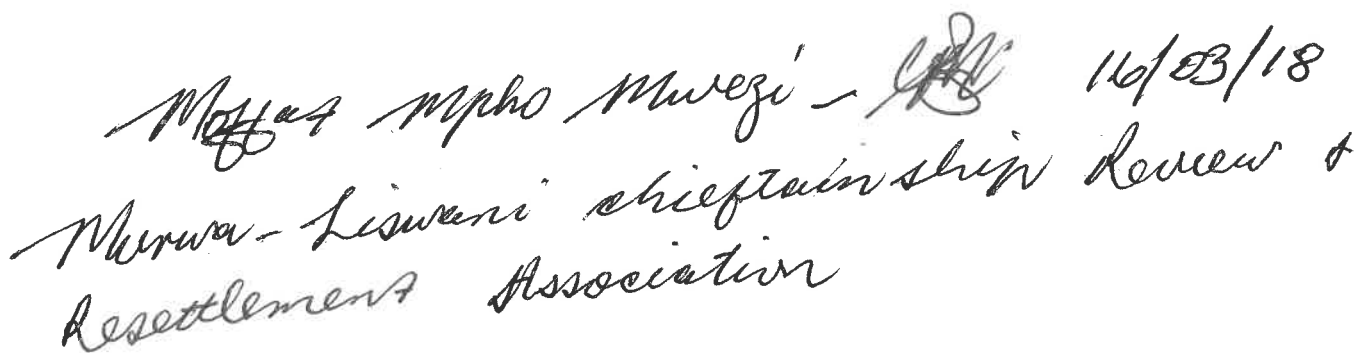 Moffat Mpho Mwezi - 16/03/18
Murwa - Liswani chieftainship Review &
Resettlement Association